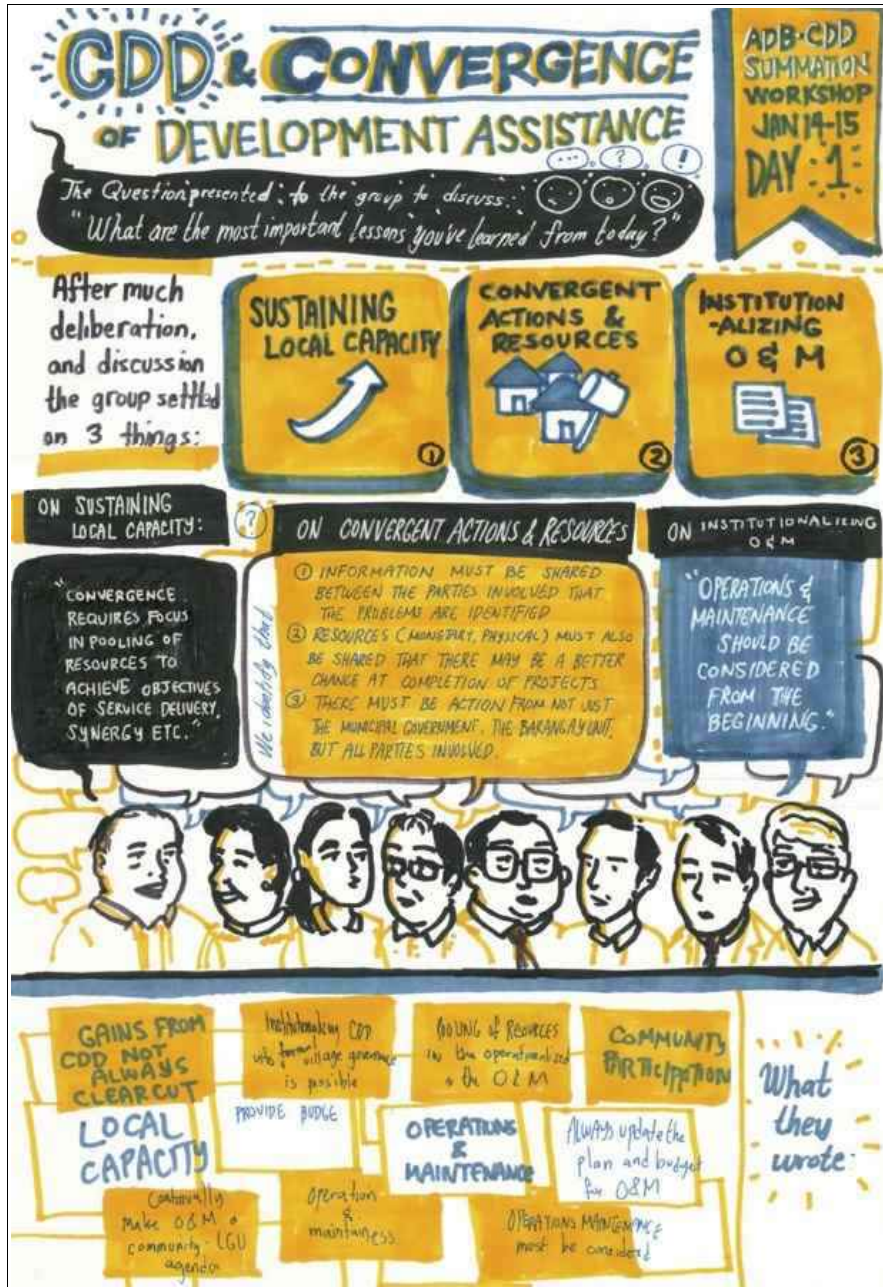 CDD & CONVERGENCE
OF DEVELOPMENT ASSISTANCE
ADB-CDD
SUMMATION
WORKSHOP
JAN 14-15
DAY : 1
... ? !
The Question presented to the group to discuss:
"What are the most important lessons you've learned from today?"
After much
deliberation,
and discussion
the group settled
on 3 things:
SUSTAINING
LOCAL CAPACITY
1
CONVERGENT
ACTIONS &
RESOURCES
2
INSTITUTION
-ALIZING
O & M
3
ON SUSTAINING
LOCAL CAPACITY:
"CONVERGENCE
REQUIRES FOCUS
IN POOLING OF
RESOURCES TO
ACHIEVE OBJECTIVES
OF SERVICE DELIVERY,
SYNERGY ETC."
?
ON CONVERGENT ACTIONS & RESOURCES
We identify that
1 INFORMATION MUST BE SHARED
BETWEEN THE PARTIES INVOLVED THAT
THE PROBLEMS ARE IDENTIFIED
2 RESOURCES (MONETARY, PHYSICAL) MUST ALSO
BE SHARED THAT THERE MAY BE A BETTER
CHANCE AT COMPLETION OF PROJECTS
3 THERE MUST BE ACTION FROM NOT JUST
THE MUNICIPAL GOVERNMENT, THE BARANGAY UNIT,
BUT ALL PARTIES INVOLVED.
ON INSTITUTIONALIZING
O&M
"OPERATIONS &
MAINTENANCE
SHOULD BE
CONSIDERED
FROM THE
BEGINNING."
GAINS FROM
CDD NOT
ALWAYS
CLEAR CUT
CDD
village
is possible
POOLING OF RESOURCES
in the
the O&M
COMMUNITY
PARTICIPATION
What
they
wrote:
LOCAL
CAPACITY
PROVIDE BUDGE
OPERATIONS
&
MAINTENANCE
ALWAYS update the
plan and budget
for O&M
make O&M a
community-LGU
agenda
Operation
&
maintainess
OPERATIONS MAINTENANCE
must be considered